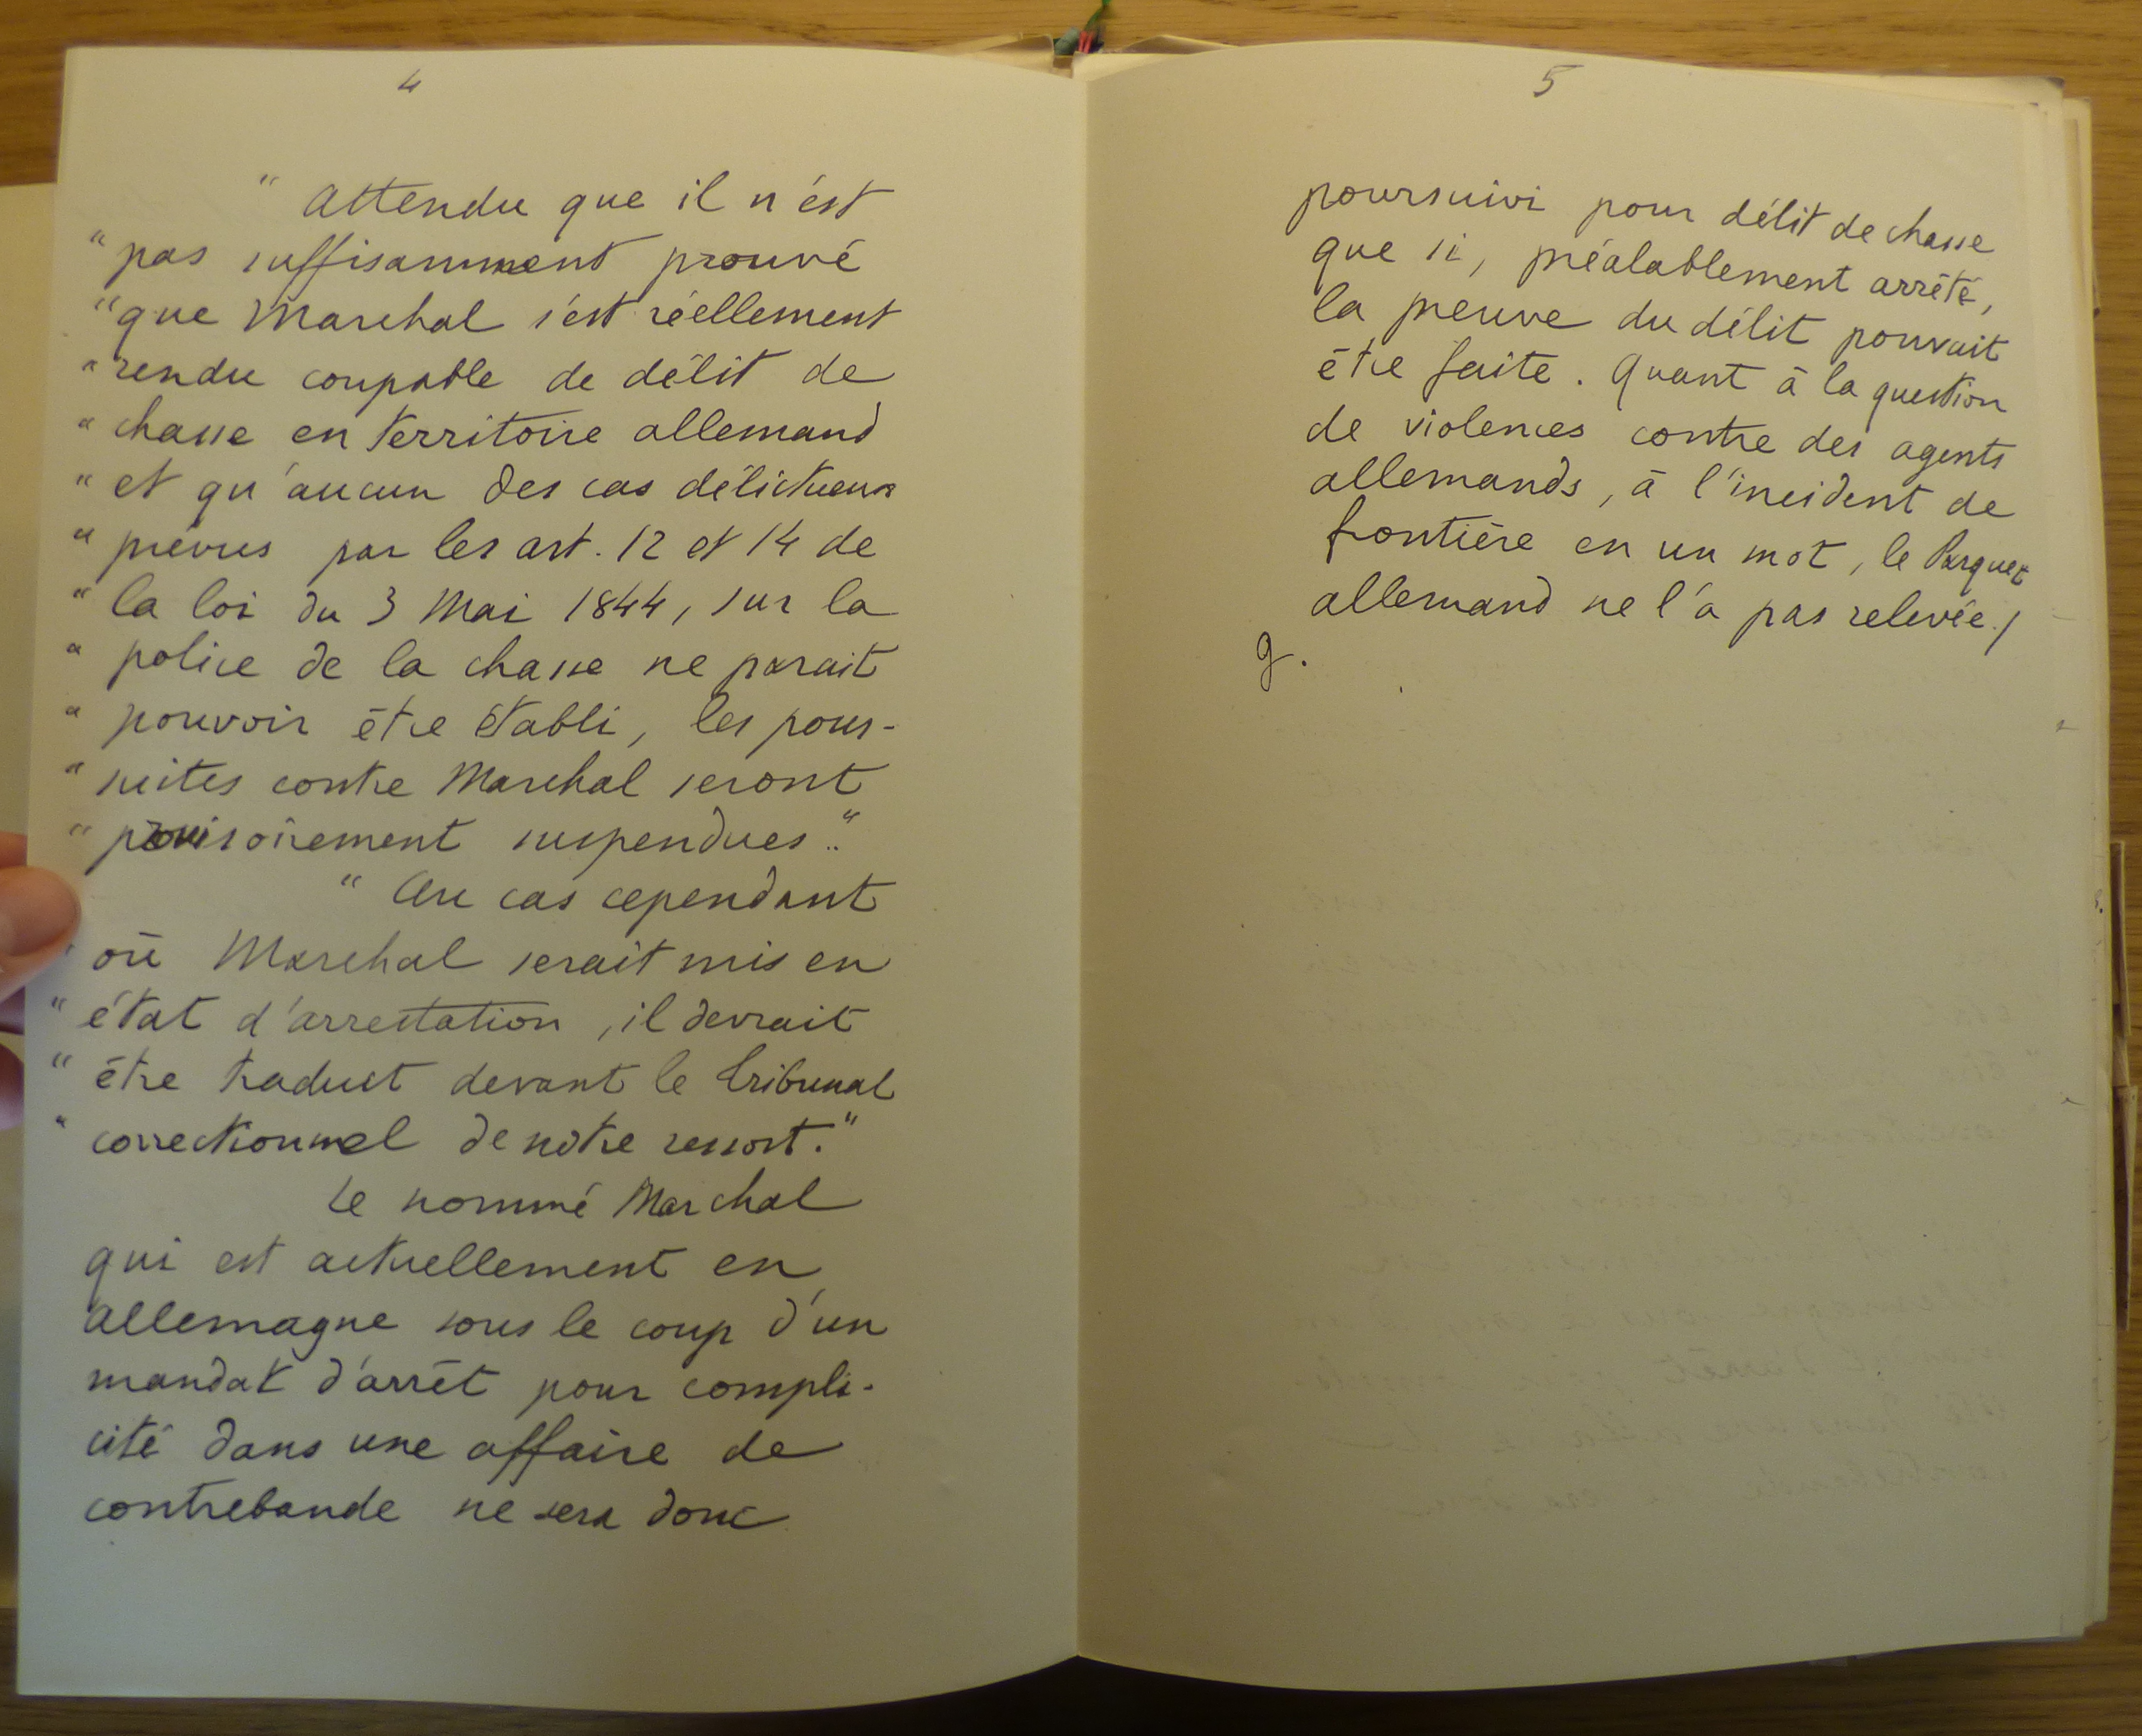 4
" Attendu que il n'est
" pas suffisamment prouvé
" que Marchal s'est réellement
" rendu coupable de délit de
" chasse en territoire allemand
" et qu'aucun des cas délictueux
" prévus par les art. 12 et 14 de
" la loi du 3 Mai 1844, sur la
" police de la chasse ne parait
" pouvoir être établi, les pour-
" suites contre Marchal seront
" provisoirement suspendues."
" Au cas cependant
" où Marchal serait mis en
" état d'arrestation, il devrait
" être traduit devant le tribunal
" correctionnel de notre ressort."
Le nommé Marchal
qui est actuellement en
Allemagne sous le coup d'un
mandat d'arrêt pour compli-
cité dans une affaire de
contrebande ne sera donc
5
poursuivi pour délit de chasse
que si, préalablement arrêté,
la preuve du délit pouvait
être faite. Quant à la question
de violences contre des agents
allemands, à l'incident de
frontière en un mot, le Parquet
allemand ne l'a pas relevée./
g.